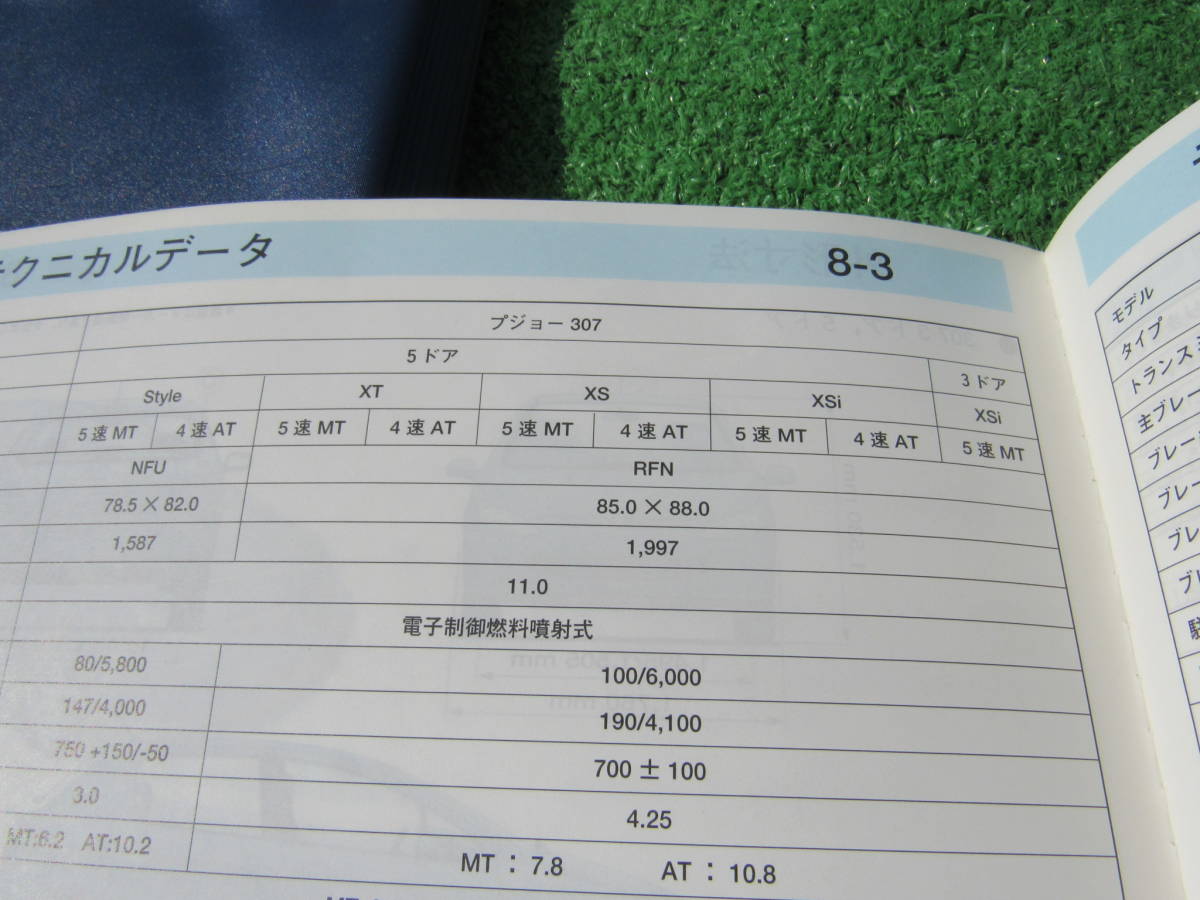 テクニカルデータ 8-3
プジョー 307
5 ドア 3 ドア
Style XT XS XSi XSi
5 速 MT 4 速 AT 5 速 MT 4 速 AT 5 速 MT 4 速 AT 5 速 MT 4 速 AT 5 速 MT
NFU RFN
78.5 × 82.0 85.0 × 88.0
1,587 1,997
11.0
電子制御燃料噴射式
80/5,800 100/6,000
147/4,000 190/4,100
750 +150/-50 700 ± 100
3.0 4.25
MT:6.2 AT:10.2 MT : 7.8 AT : 10.8
モデル
タイプ
トランス
主ブレー
ブレー
ブレー
ブレ
ブレ